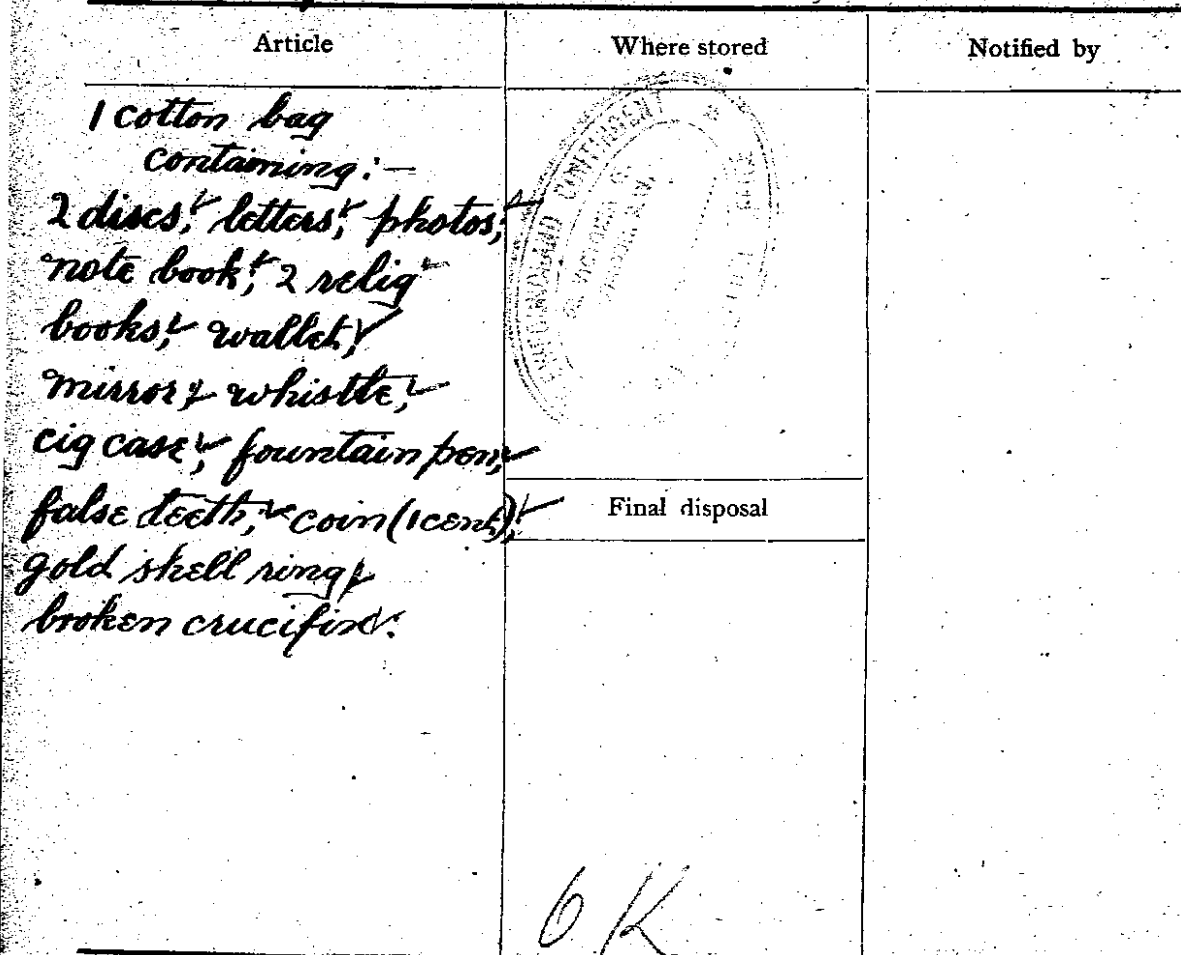 Article
Where stored
Notified by
1 cotton bag
containing:—
2 discs, letters, photos,
note book, 2 relig
books, wallet,
mirror, whistle,
cig case, fountain pen,
false teeth, coin (1 cent),
gold shell ring,
broken crucifix.
CONTINGENT
VICTORIA
Final disposal
OK